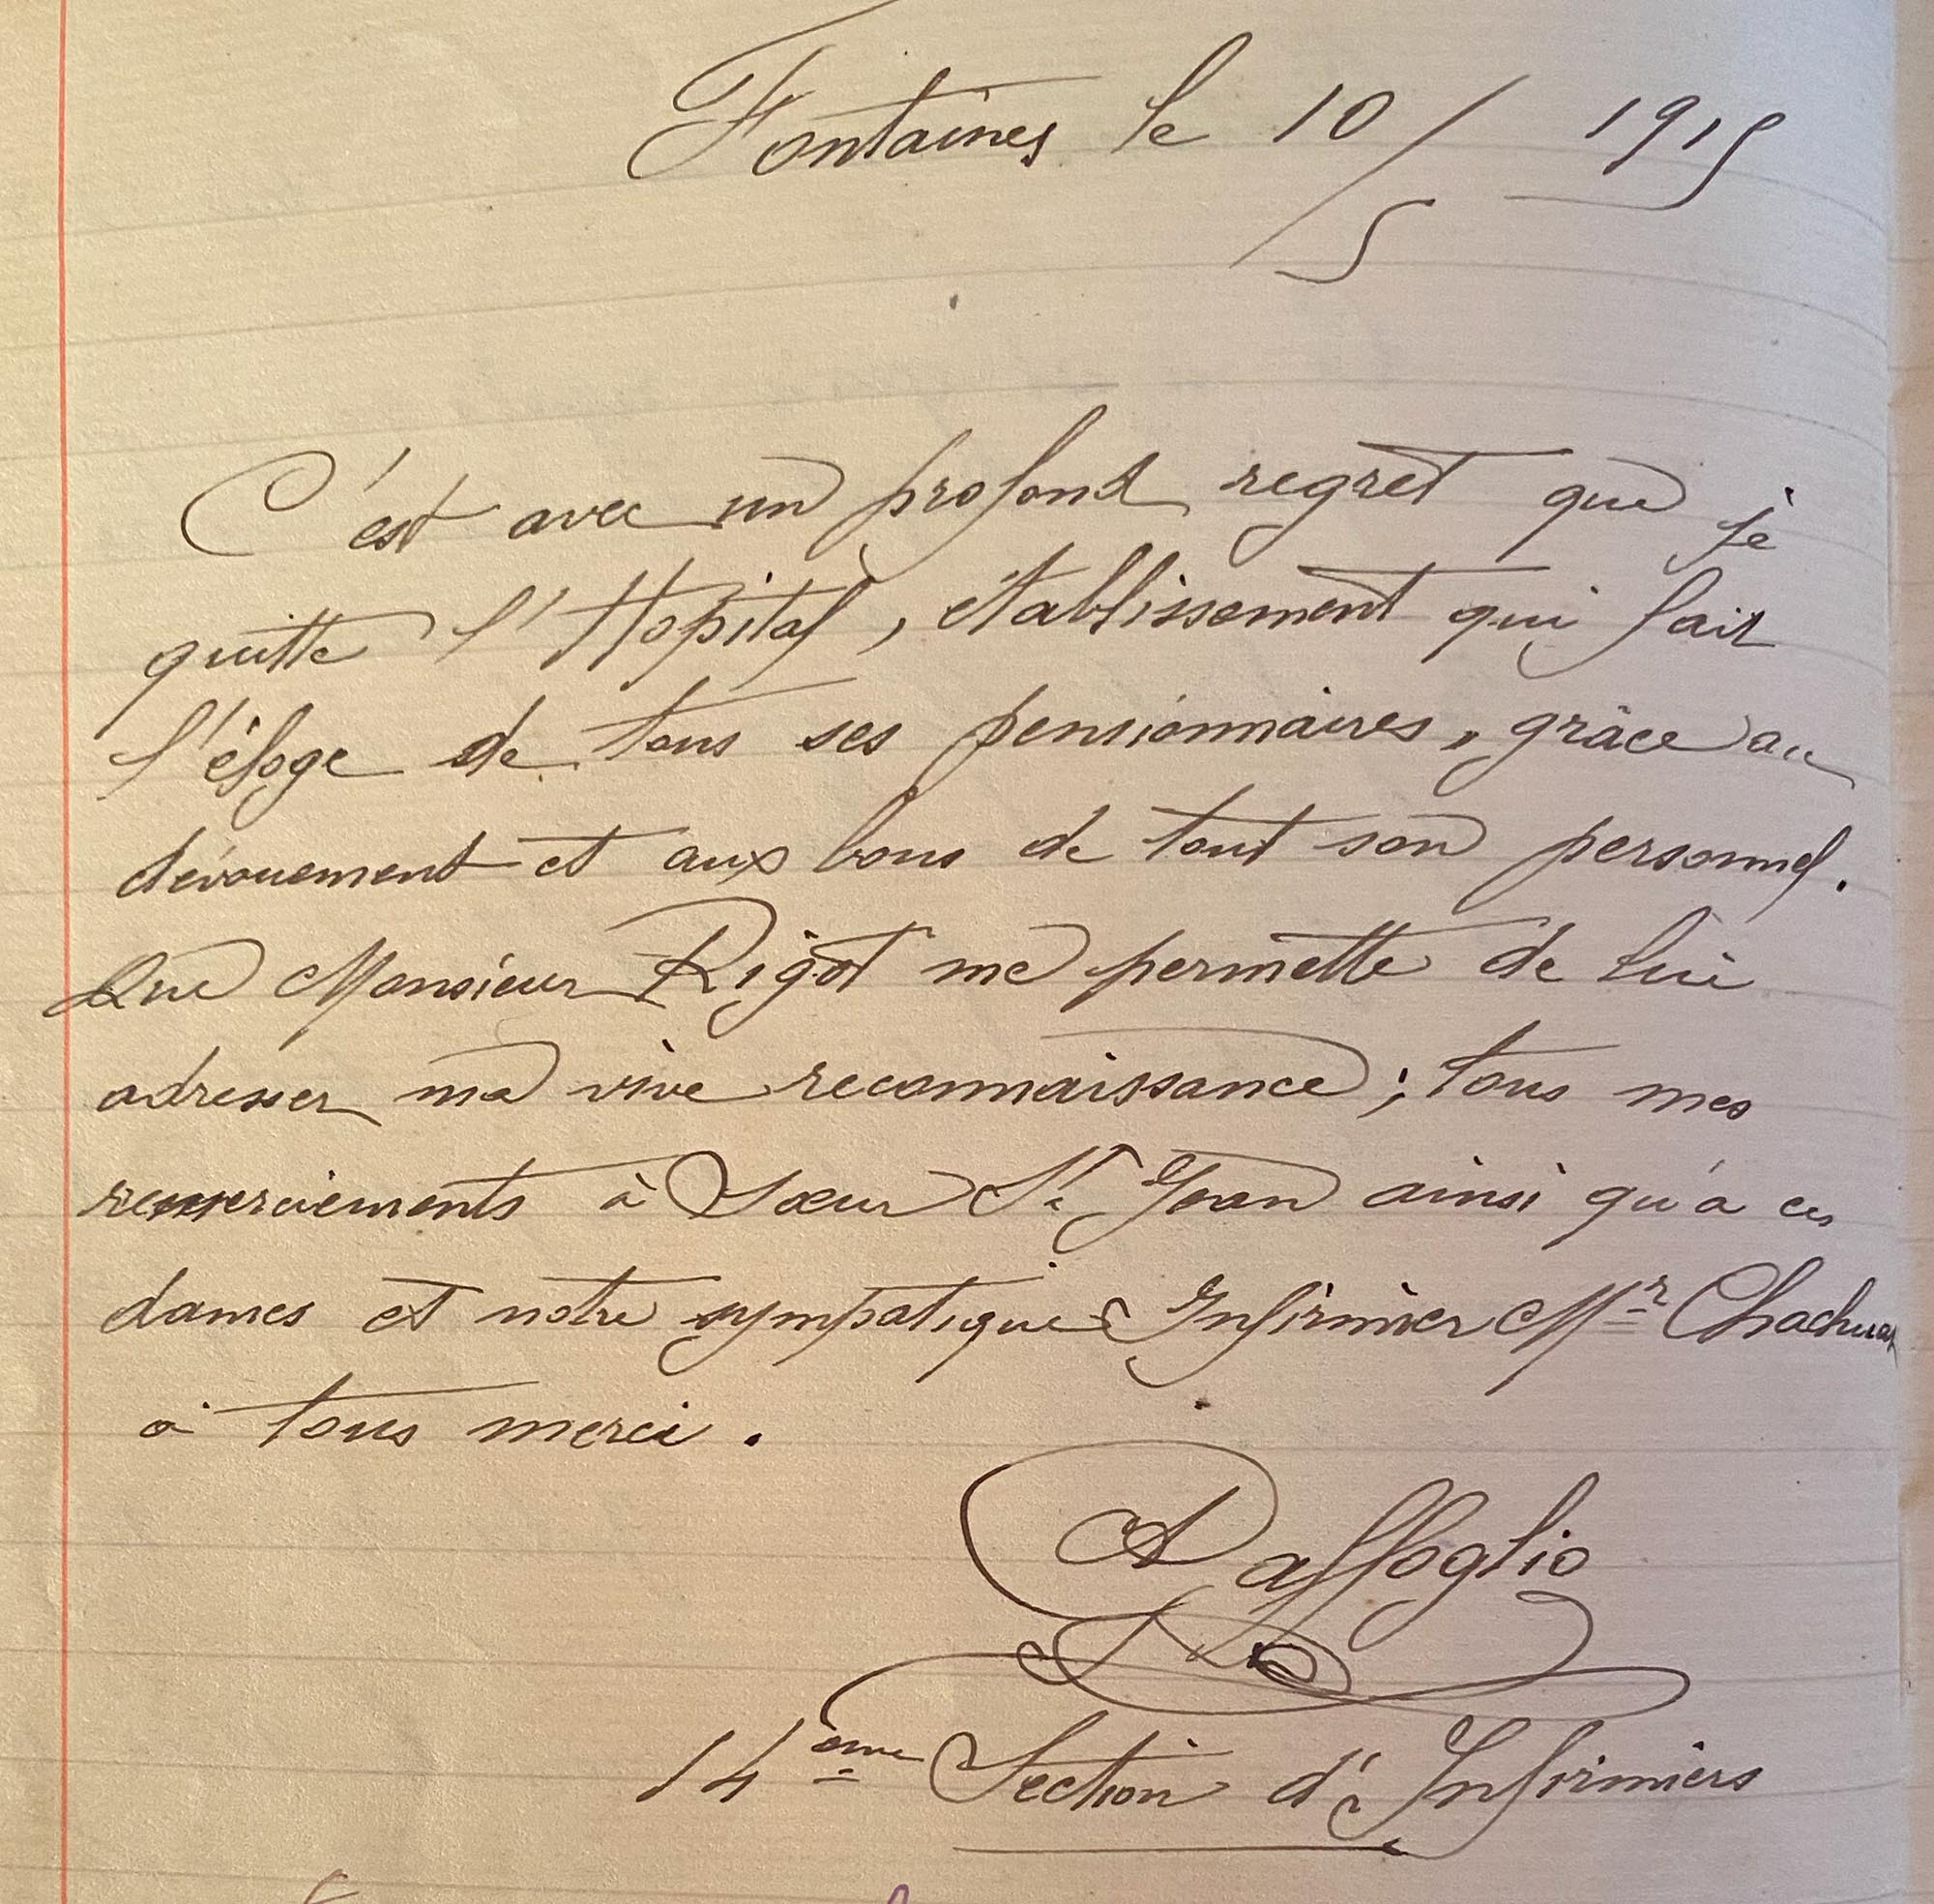 Fontaines le 10/5 1915
C'est avec un profond regret que je
quitte l'Hopital, établissement qui fait
l'éloge de tous ses pensionnaires, grâce au
dévouement et aux bons de tout son personnel.
Que Monsieur Rigot me permette de lui
adresser ma vive reconnaissance ; tous mes
remerciements à Sœur St Jean ainsi qu'à ces
dames et notre sympatique Infirmier Mr
à tous merci.
A Daffoglio
14ème Section d'Infirmiers